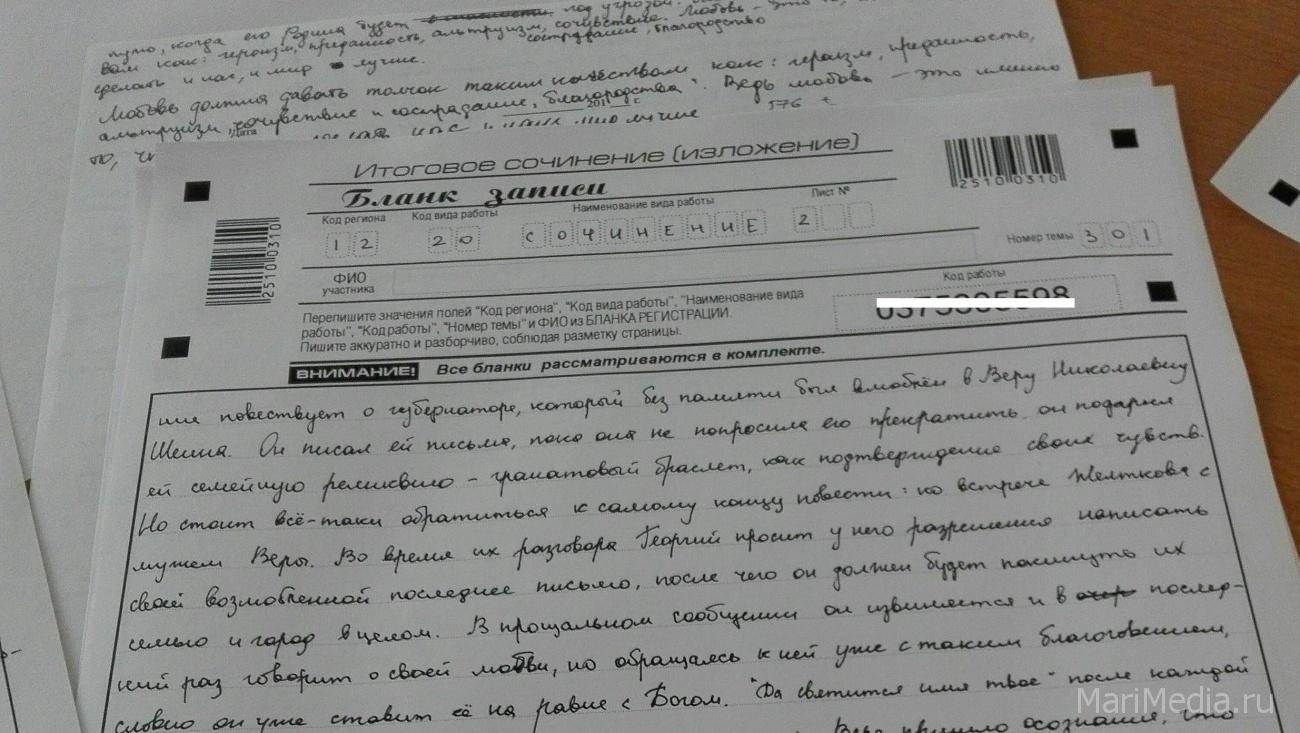 когда его Родина будет под угрозой.
вам как: героизм, преданность, альтруизм, сочувствие. Любовь – это то,
сострадание, благородство
сделать и нас, и мир лучше.
Любовь должна давать толчок таким качествам как: героизм, преданность,
альтруизм, сочувствие и сострадание, благородства". Ведь любовь – это именно
то,
576
Дата 201 г.
Итоговое сочинение (изложение)
Бланк записи
Код региона Код вида работы Наименование вида работы Лист №
12 20 СОЧИНЕНИЕ 2
Номер темы 301
2510 0310
2510 0310
ФИО участника
Код работы
Перепишите значения полей "Код региона", "Код вида работы", "Наименование вида
работы", "Код работы", "Номер темы" и ФИО из БЛАНКА РЕГИСТРАЦИИ.
Пишите аккуратно и разборчиво, соблюдая разметку страницы.
ВНИМАНИЕ! Все бланки рассматриваются в комплекте.
ние повествует о губернаторе, который без памяти был влюблён в Веру Николаевну
Шеина. Он писал ей письма, пока она не попросила его прекратить. он подарил
ей семейную реликвию – гранатовый браслет, как подтверждение своих чувств.
Но стоит всё-таки обратиться к самому концу повести: ко встрече Желткова с
мужем Веры. Во время их разговора Георгий просит у него разрешения написать
своей возлюбленной последнее письмо, после чего он должен будет покинуть их
семью и город в целом. В прощальном сообщении он извиняется и в послед-
ний раз говорит о своей любви, но обращаясь к ней уже с таким благоговением,
словно он уже ставит её на равне с Богом. "Да святится имя твое" после каждой
Вера пришло осознание, что
MariMedia.ru